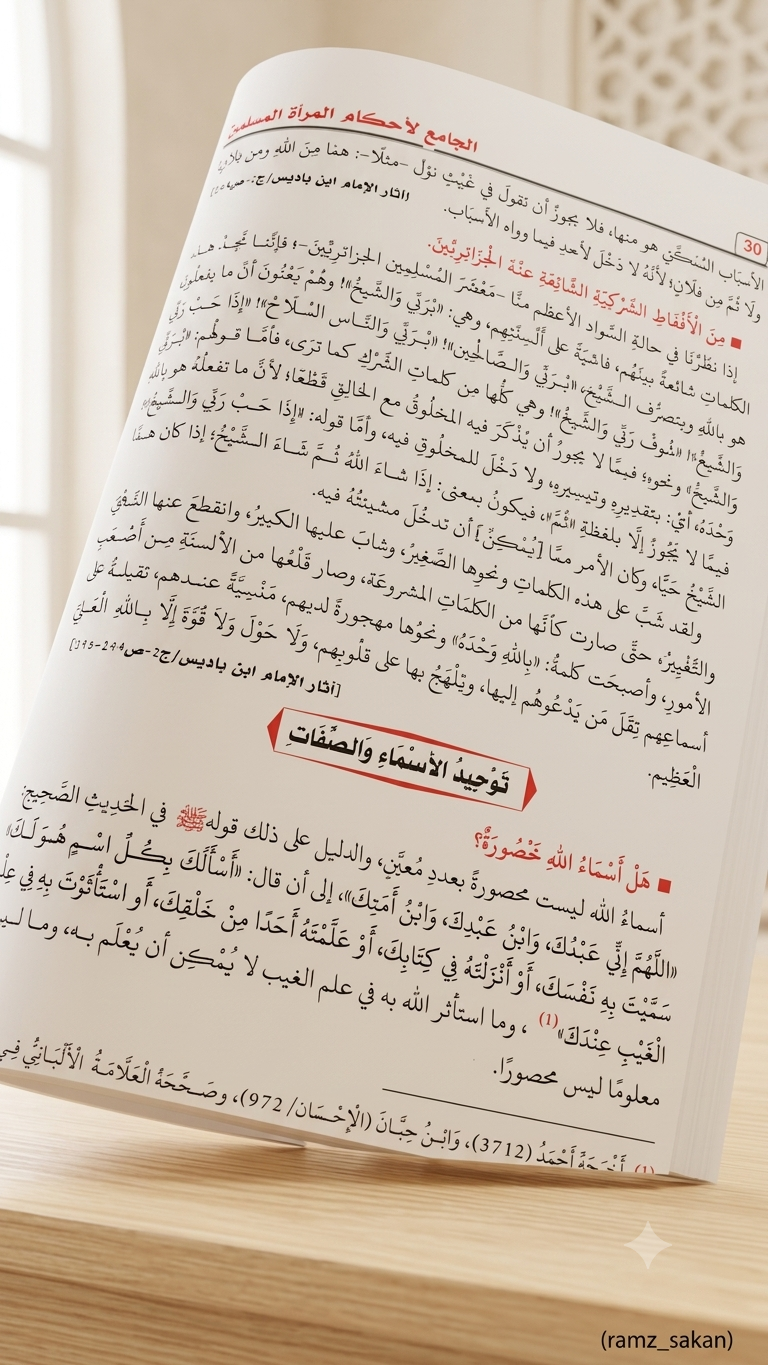 الجامع لأحكام المرأة المسلمة
30
الأسبَاب المُمَكَّني هو منها، فلا يجوزُ أن تقولَ في غَيْثٍ نزلَ -مثلًا-: هذا مِنَ اللهِ ومن
ولَا ثُمَّ مِن فلَان؛ لأنَّهُ لا دَخْلَ لأحدٍ فيما وراء الأسبَاب.
■ مِنَ الْأَلْفَاظِ الشَّرْكِيَّةِ الشَّائِعَةِ عِنْدَ الْجَزَائِرِيِّينَ.
إذا نظَرْنَا في حالةِ السَّواد الأعظم منَّا -مَعْشَرَ المُسْلِمِين الجزائريِّينَ-؛ فإنَّنا نَجِدُ هذه
الكلماتِ شائعةً بينَهُم، فاشيَةً على ألْسِنَتِهِم، وهي: «بْرَبِّي وَالشَّيخْ»! وهُمْ يَعْنُونَ أنَّ ما يفعلُونَ
هو باللهِ وبتصرُّف الشَّيْخ، «بْرَبِّي وَالصَّالحِين»! «بْرَبِّي وَالنَّاس السْلَاحْ»! «إذَا حَبْ رَبِّي
وَالشِّيخْ»! «شُوفْ رَبِّي وَالشِّيخْ»! وهي كلُّها مِن كلماتِ الشَّرْكِ كما ترَى، فأمَّا قولُهُم: «بْرَبِّي
وَالشِّيخْ» ونحوه؛ فممَّا لا يجوزُ أن يُذْكَرَ فيه المخلُوقُ مع الخالقِ قَطْعًا؛ لأنَّ ما تفعلُهُ هو باللهِ
وَحْدَهُ، أيْ: بتقديرِه وتيسيرِه، ولا دَخْلَ للمخلُوقِ فيه، وأمَّا قوله: «إِذَا حَبْ رَبِّي وَالشِّيخْ»؛
فممَّا لا يَجُوزُ إلَّا بلفظةِ «ثُمَّ»، فيكونُ بمعنى: إذَا شاءَ اللهُ ثُمَّ شَاءَ الشَّيْخُ؛ إذا كان هذا
الشَّيْخُ حَيًّا، وكان الأمر ممَّا [يُمْكِنُ] أن تدخُلَ مشيئتُهُ فيه.
ولقد شَبَّ على هذه الكلماتِ ونحوِها الصَّغِيرُ، وشابَ عليها الكبيرُ، وانقطعَ عنها
والتَّغْيِيرُ، حتَّى صارت كأنَّها من الكلمَاتِ المشروعَة، وصار قَلْعُها من الألسنَةِ مِن أَصْعَبِ
الأمورِ، وأصبحَت كلمةُ: «بِاللهِ وَحْدَهُ» ونحوُها مهجورةً لديهم، مَنْسِيَّةً عندهم، ثقيلةً على
أسماعِهِم ثِقَلَ مَن يَدْعُوهُم إليها، ويَلْهَجُ بها على قلُوبِهِم، وَلَا حَوْلَ وَلَا قُوَّةَ إِلَّا بِاللهِ الْعَلِيِّ
الْعَظِيمِ.
[آثار الإمام ابن باديس/ج2-ص294-295]
تَوْحِيدُ الأَسْمَاءِ وَالصِّفَاتِ
■ هَلْ أَسْمَاءُ اللهِ مَحْصُورَةٌ؟
أسماءُ الله ليست محصورةً بعددٍ مُعيَّنٍ، والدليل على ذلك قوله ﷺ في الحَدِيثِ الصَّحِيحِ:
«اللَّهُمَّ إِنِّي عَبْدُكَ، وَابْنُ عَبْدِكَ، وَابْنُ أَمَتِكَ»، إلى أن قال: «أَسْأَلُكَ بِكُلِّ اسْمٍ هُوَ لَكَ
سَمَّيْتَ بِهِ نَفْسَكَ، أَوْ أَنْزَلْتَهُ فِي كِتَابِكَ، أَوْ عَلَّمْتَهُ أَحَدًا مِنْ خَلْقِكَ، أَو اسْتَأْثَرْتَ بِهِ فِي
الْغَيْبِ عِنْدَكَ»(1)، وما استأثر الله به في علم الغيب لا يُمْكِن أن يُعْلَم به، وما
معلومًا ليس محصورًا.
(1) أَخْرَجَهُ أَحْمَدُ (3712)، وَابْنُ حِبَّانَ (الْإِحْسَان/ 972)، وصَحَّحَهُ الْعَلَّامَةُ الْأَلْبَانِيُّ فِي
(ramz_sakan)